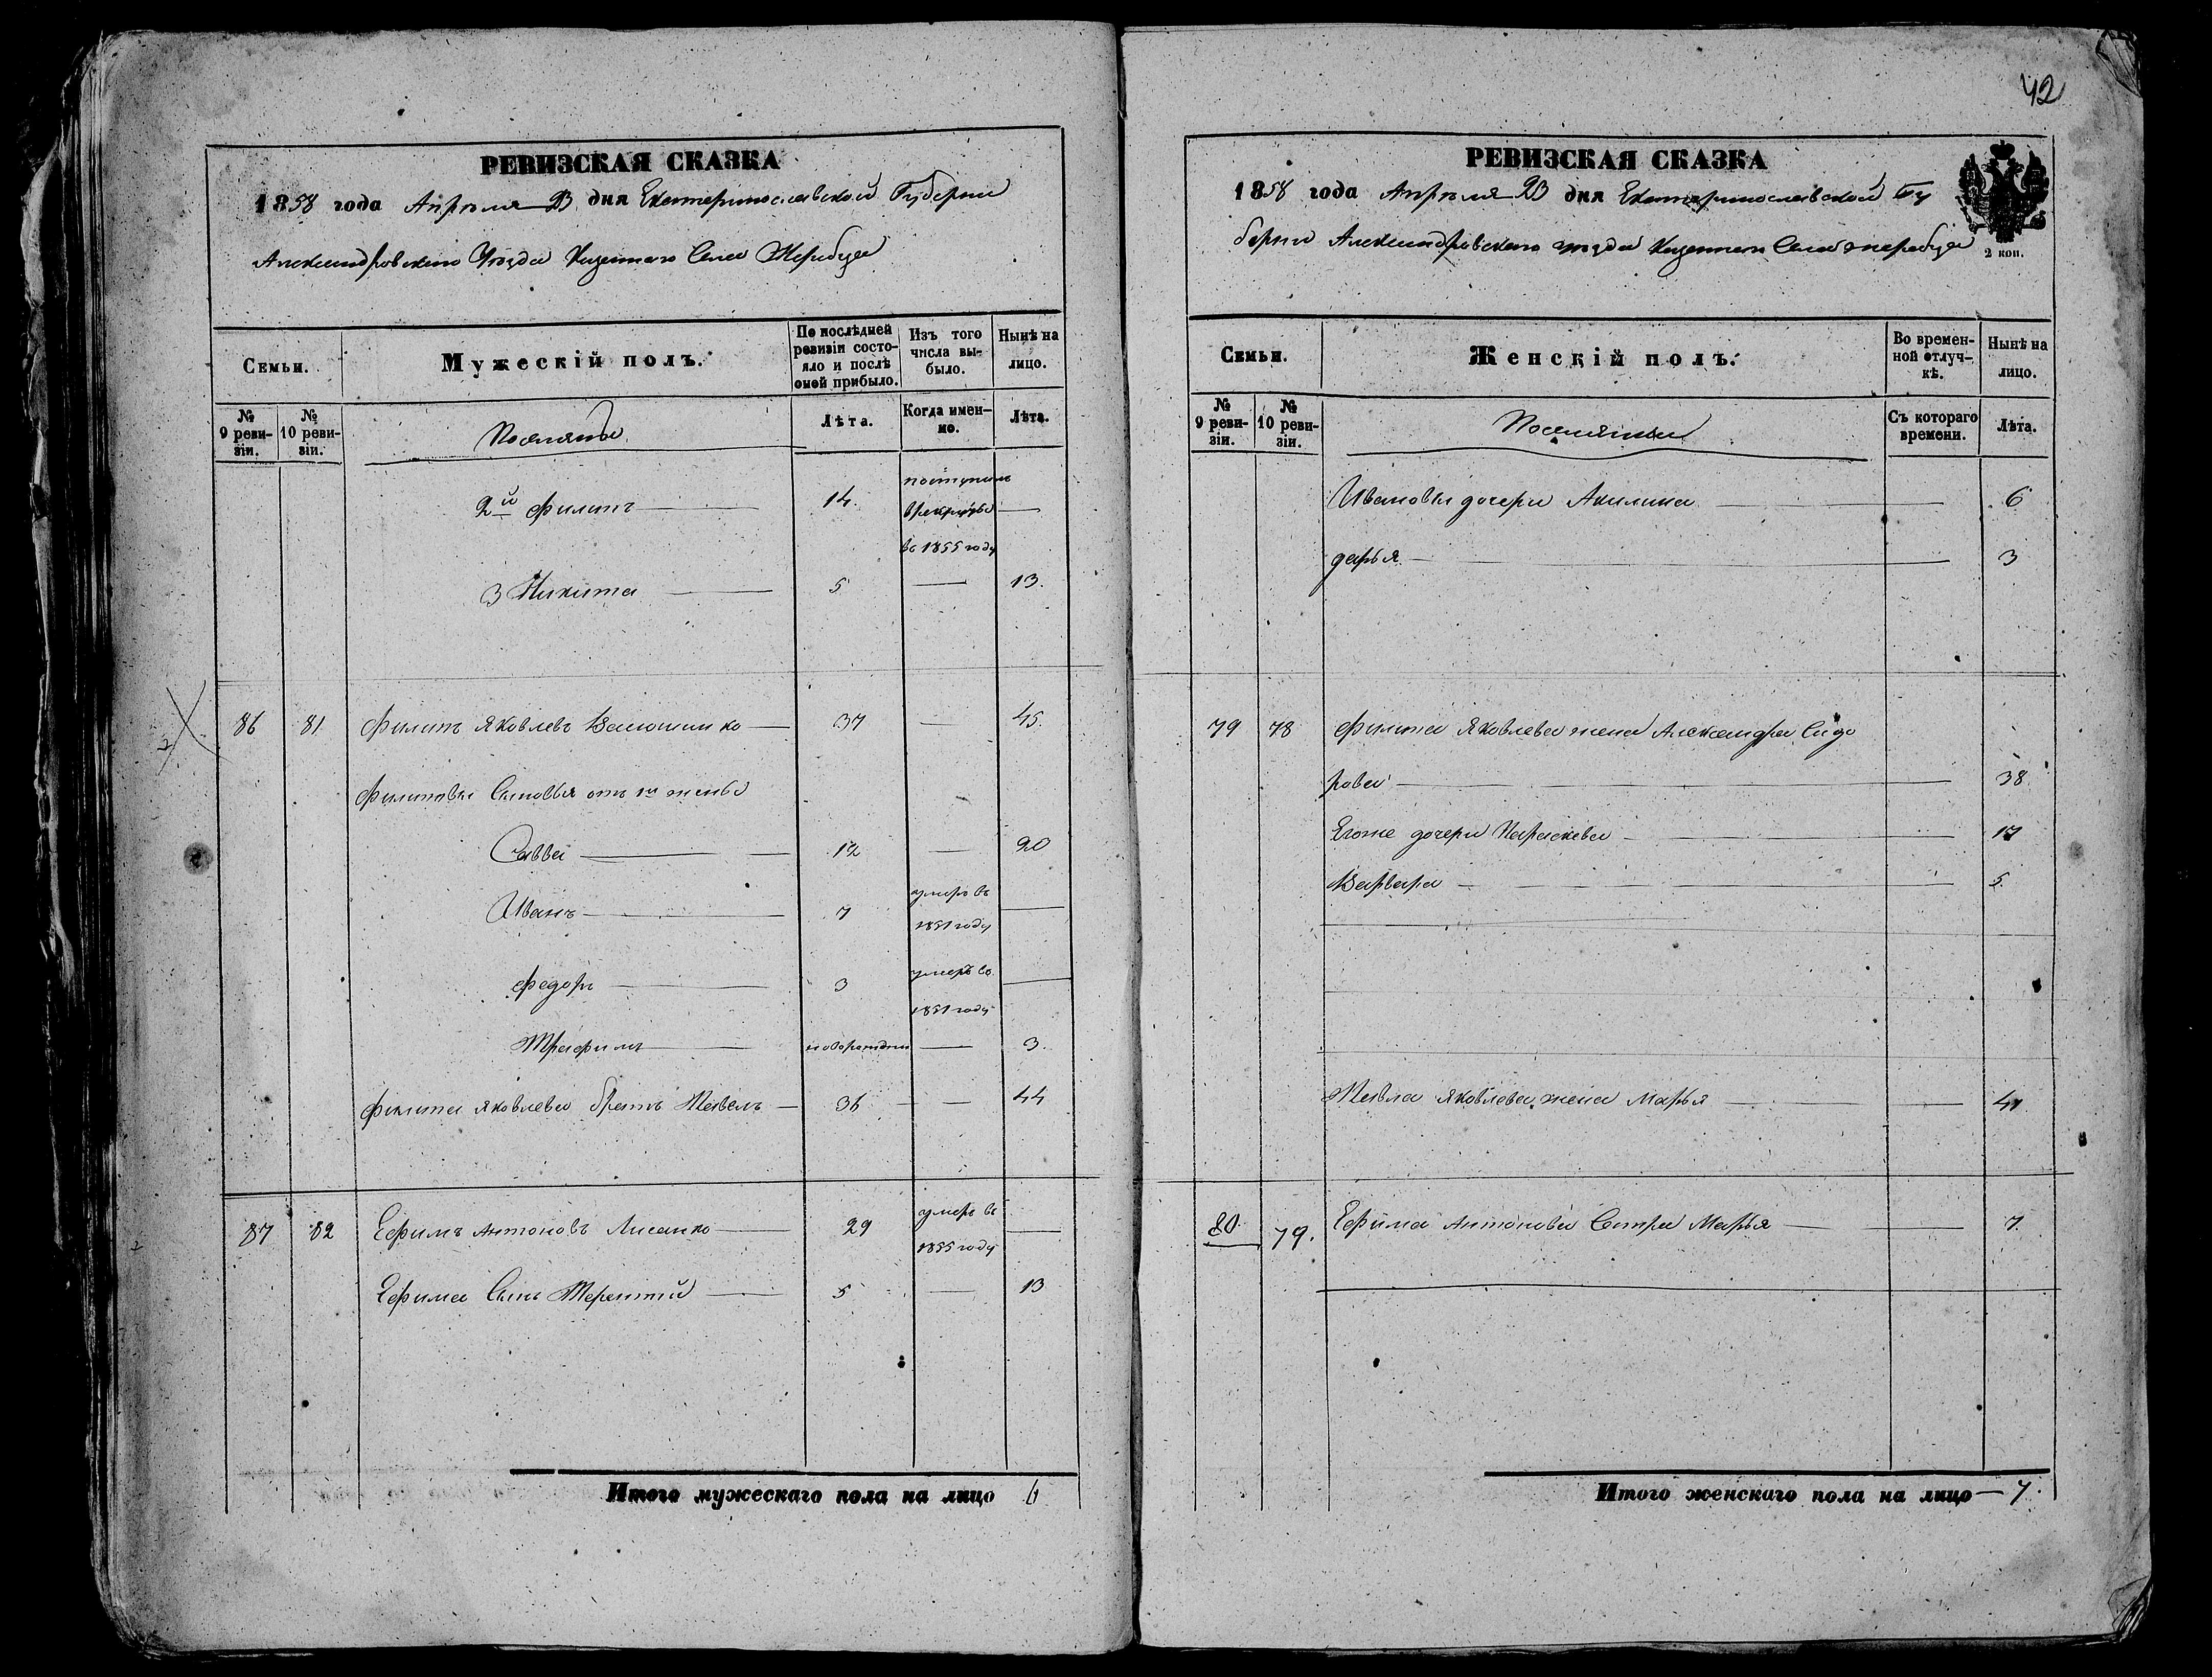 42
РЕВИЗСКАЯ СКАЗКА
1858 года Апреля 23 дня Екатеринославской Губернии
Александровского Уезда Казенного Села Жеребца
Семьи.
Мужескій полъ.
По послѣдней ревизіи состояло и послѣ оной прибыло.
Изъ того числа выбыло.
Нынѣ на лицо.
№ 9 ревизіи.
№ 10 ревизіи.
Поселяне
Лѣта.
Когда именно.
Лѣта.
2й Филипъ 14. поступилъ
в рекруты
въ 1855 году
3 Никита 5 13.
86 81 Филипъ Яковлевъ 37 45.
Филиповы Сыновья отъ 1й жены
Савва 12 20
Иванъ 7 умеръ въ
1851 году
Федоръ 3 умеръ въ
1851 году
Трафимъ новорожден 3.
Филипа Яковлева братъ Павелъ 36 44
87 82 Ефимъ Антоновъ Лисенко 29 умеръ въ
1855 году
Ефима Сынъ Терентий 5 13
Итого мужескаго пола на лицо 6
РЕВИЗСКАЯ СКАЗКА
1858 года Апреля 23 дня Екатеринославской Гу
бернии Александровского уезда Казенного Села Жеребца
2 коп.
Семьи.
Женскій полъ.
Во временной отлучкѣ.
Нынѣ на лицо.
№ 9 ревизіи.
№ 10 ревизіи.
Поселянки
Съ котораго времени.
Лѣта.
Ивановы дочери Акилина 6
Дарья 3
79 78 Филипа Яковлева жена Александра Сидо
рова 38.
Егоже дочери Параскева 17
Варвара 5.
Павла Яковлева жена Марья 41
80 79. Ефима Антонова Сестра Марья 7.
Итого женскаго пола на лицо 7.